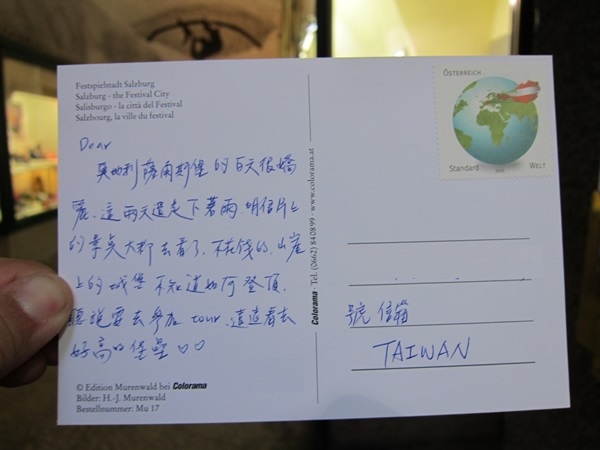 Festspielstadt Salzburg
Salzburg - the Festival City
Salisburgo - la città del Festival
Salzbourg, la ville du festival
Dear
奧地利薩爾斯堡的白天很嬌
麗、這兩天還是下著雨,明信片上
的景點大都去看了,不花錢的,山崖
上的城堡不知道如何登頂,
聽說要去參加 tour,遠遠看去
好高的堡壘♡♡
© Edition Murenwald bei Colorama
Bilder: H.-J. Murenwald
Bestellnummer: Mu 17
Colorama · Tel. (0662) 840899 · www.colorama.at
ÖSTERREICH
Standard
WELT
號信箱
TAIWAN